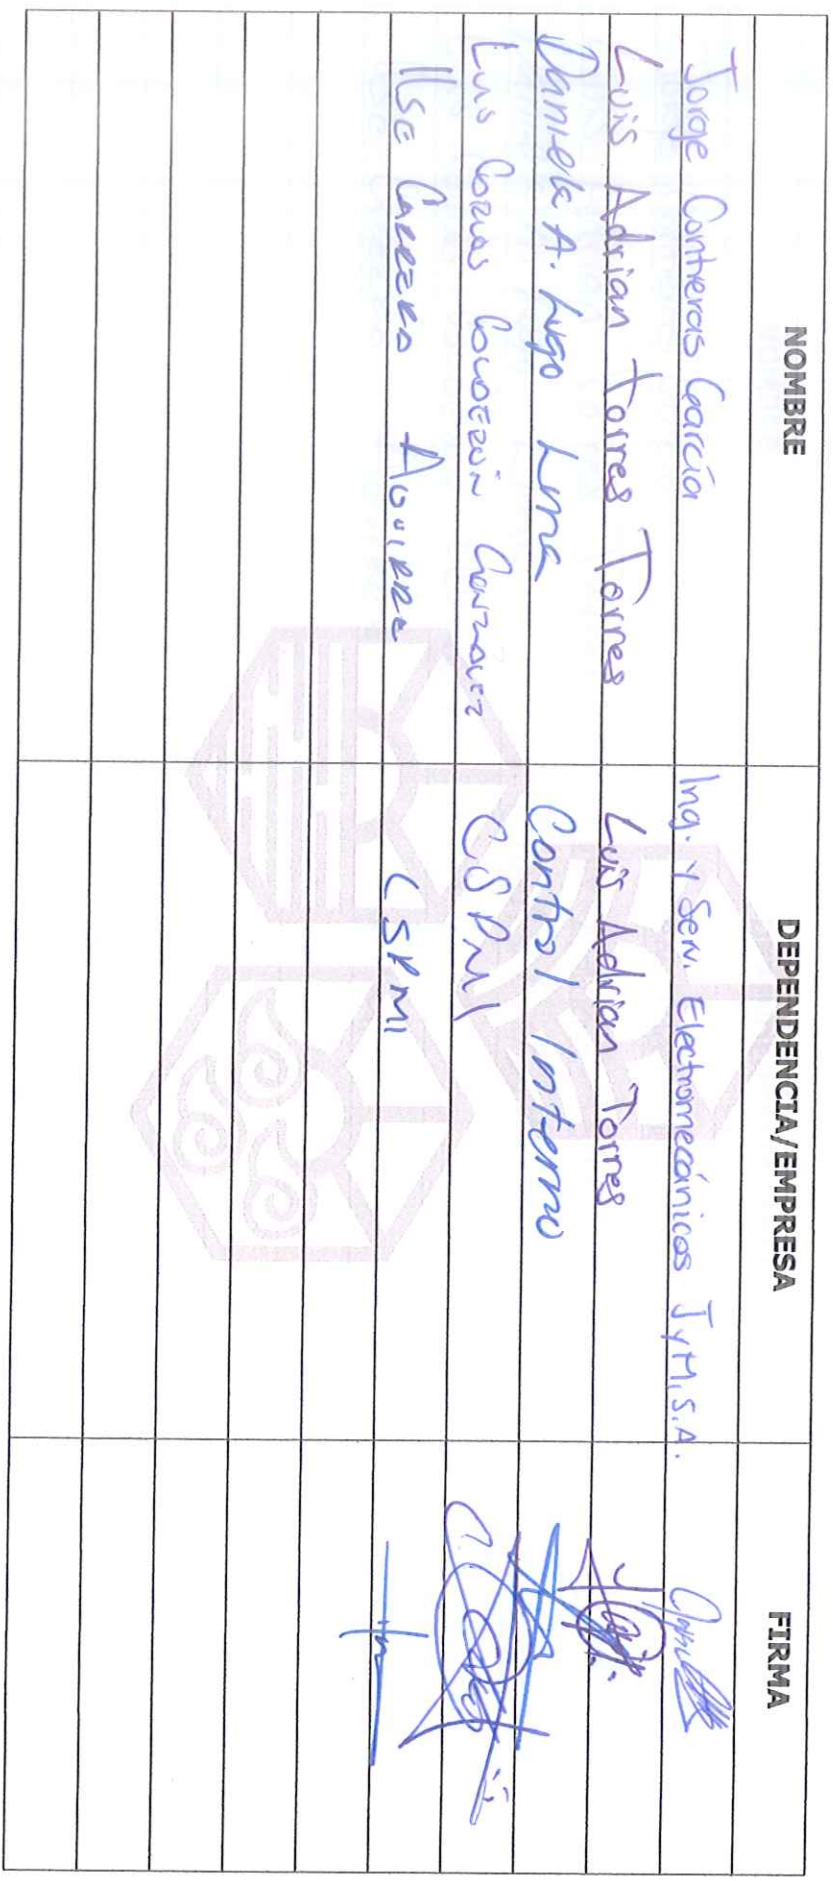 NOMBRE DEPENDENCIA/EMPRESA FIRMA
Jorge Contreras García Ing. y Serv. Electromecánicos J y M, S.A.
Luis Adrian Torres Torres Luis Adrian Torres
Daniela A. Lugo Luna Control Interno
Luis Carlos Calderón González CSPMI
Ilse Carrera Aguirre CSPMI